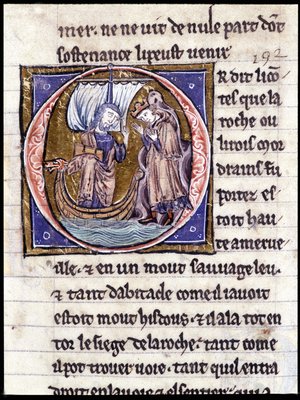 mer. ne ne uit de nule part dōt
sostenance li peust uenir
192
OR dit li cō
tes que la
roche ou
li rois mor
drains fu
portez es
toit hau
te a merue
ille. & en un mout sauuage leu.
& tant dabitacle come il iauoit
estoit mout hisdous. & il ala tot en
tor le siege de la roche. tant come
il pot trouer uoie. tant quil entra
droit en la uoie & el sentier. qui a